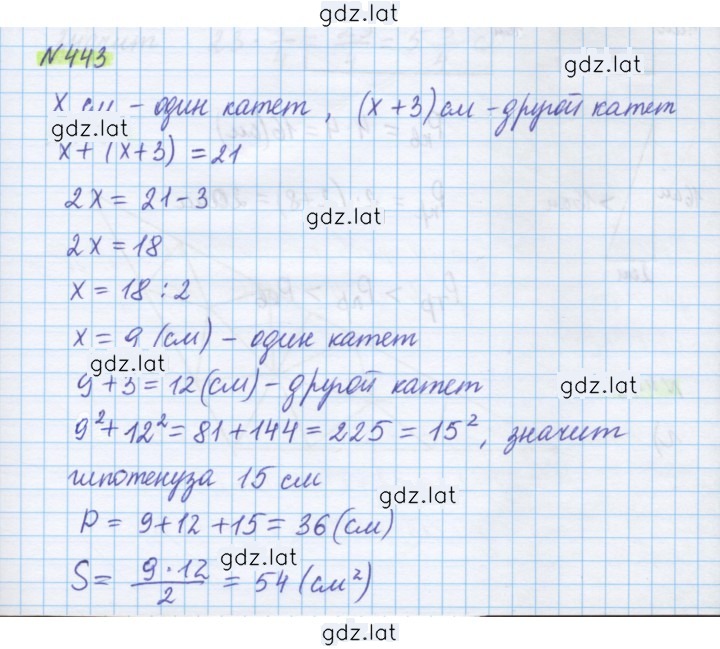 gdz.lat
N443
gdz.lat
x см - один катет, (x+3) см - другой катет
gdz.lat
x + (x+3) = 21
2x = 21-3
gdz.lat
2x = 18
x = 18 : 2
x = 9 (см) - один катет
gdz.lat
9+3 = 12 (см) - другой катет
gdz.lat
9² + 12² = 81 + 144 = 225 = 15², значит
гипотенуза 15 см
gdz.lat
P = 9+12+15 = 36 (см)
gdz.lat
S = 9·12/2 = 54 (см²)
gdz.lat